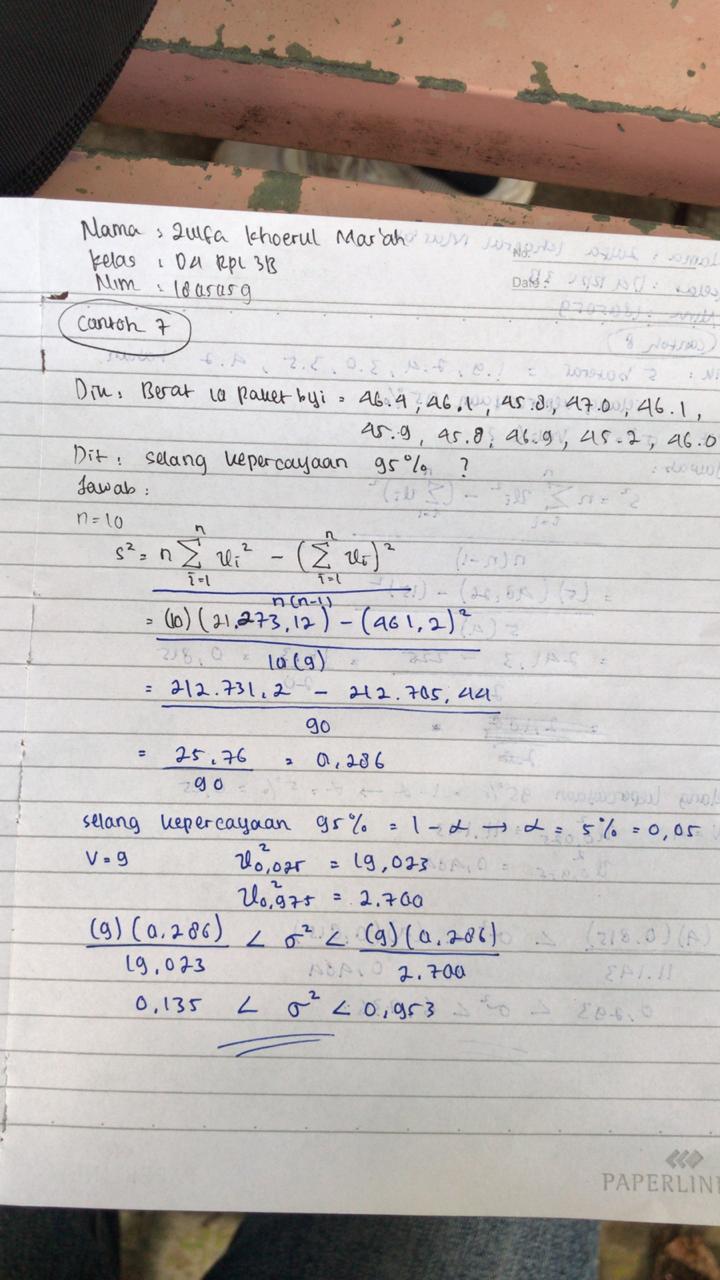 Nama : Zulfa Khoerul Mar'ah
No:
Kelas : D4 RPL 3B
Date :
Nim :
Contoh 7
Dik : Berat 10 paket biji = 46.4, 46.1, 45.8, 47.0, 46.1,
45.9, 45.8, 46.9, 45.2, 46.0
Dit : selang kepercayaan 95% ?
Jawab :
n = 10
s² = n ∑ᵢ₌₁ⁿ xᵢ² - (∑ᵢ₌₁ⁿ xᵢ)²
n(n-1)
= (10)(21.273,12) - (461,2)²
10(9)
= 212.731,2 - 212.705,44
90
= 25,76 = 0,286
90
selang kepercayaan 95% = 1 - α → α = 5% = 0,05
V = 9 x²0,025 = 19,023
x²0,975 = 2.700
(9)(0,286) < σ² < (9)(0,286)
19,023 2.700
0,135 < σ² < 0,953
PAPERLIN